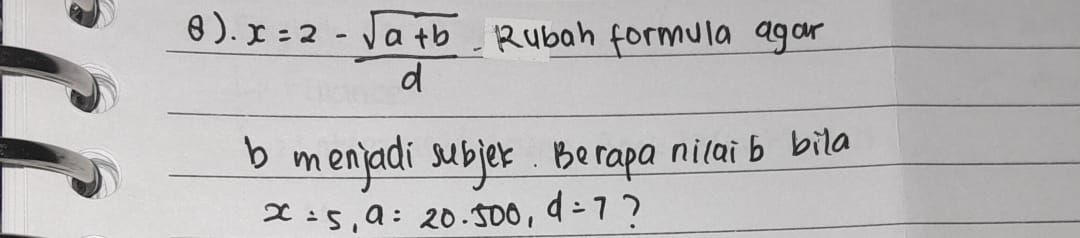 8). x = 2 - √(a+b)/d . Rubah formula agar
b menjadi subjek. Berapa nilai b bila
x = 5, a = 20.500, d = 7?